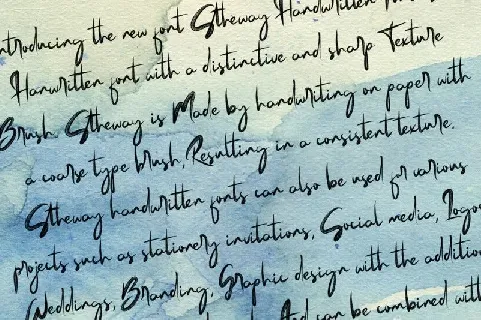 ntroducing the new font Stheway Handwritten
Hanwritten font with a distinctive and sharp Texture
Brush. Stheway is Made by handwriting on paper with
a coarse type brush, Resulting in a consistent texture.
Stheway handwritten fonts can also be used for various
projects such as stationery invitations, Social media, Logo
Weddings, Branding, Graphic design with the addition
And can be combined with